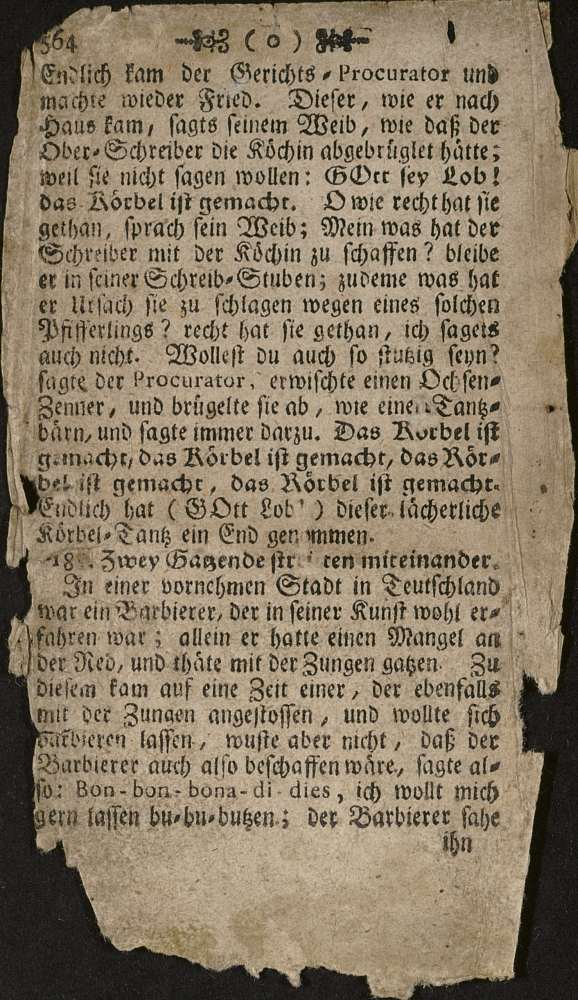 564 ( o )
Endlich kam der Gerichts-Procurator und
machte wieder Fried. Dieser, wie er nach
Haus kam, sagts seinem Weib, wie daß der
Ober-Schreiber die Köchin abgebrüglet hätte;
weil sie nicht sagen wollen: GOtt sey Lob!
das Körbel ist gemacht. O wie recht hat sie
gethan, sprach sein Weib; Mein was hat der
Schreiber mit der Köchin zu schaffen? bleibe
er in seiner Schreib-Stuben; zudeme was hat
er Ursach sie zu schlagen wegen eines solchen
Pfifferlings? recht hat sie gethan, ich sagets
auch nicht. Wollest du auch so stutzig seyn?
sagte der Procurator, erwischte einen Ochsen-
Zenner, und brügelte sie ab, wie einen Tantz-
bärn, und sagte immer darzu. Das Körbel ist
gemacht, das Körbel ist gemacht, das Kör-
bel ist gemacht, das Körbel ist gemacht.
Endlich hat (GOtt Lob!) dieser lächerliche
Körbel-Tantz ein End genommen.
Zwey Gatzende miteinander.
In einer vornehmen Stadt in Teutschland
war ein Barbierer, der in seiner Kunst wohl er-
fahren war; allein er hatte einen Mangel an
der Red, und thäte mit der Zungen gatzen. Zu
diesem kam auf eine Zeit einer, der ebenfalls
mit der Zungen angestossen, und wollte sich
barbieren lassen, wuste aber nicht, daß der
Barbierer auch also beschaffen wäre, sagte al-
so: Bon-bon-bona-di-dies, ich wollt mich
gern lassen bu-bu-butzen; der Barbierer sahe
ihn